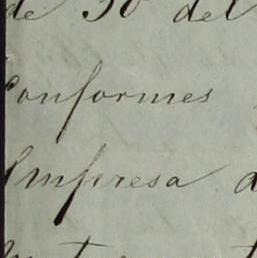 de 30 del
Conformes
Empresa